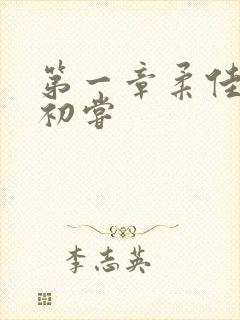 第一章柔佳
初嘗
李志英